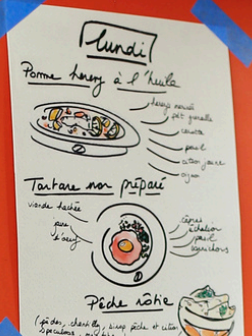 lundi
Pomme hareng à l'huile
hareng
carotte
persil
citron jaune
oignon
Tartare non préparé
viande hachée
jaune
d'oeuf
câpres
échalion
persil
cornichons
Pêche rôtie
(pêches, chantilly, sirop pêche et citron,
speculoos,